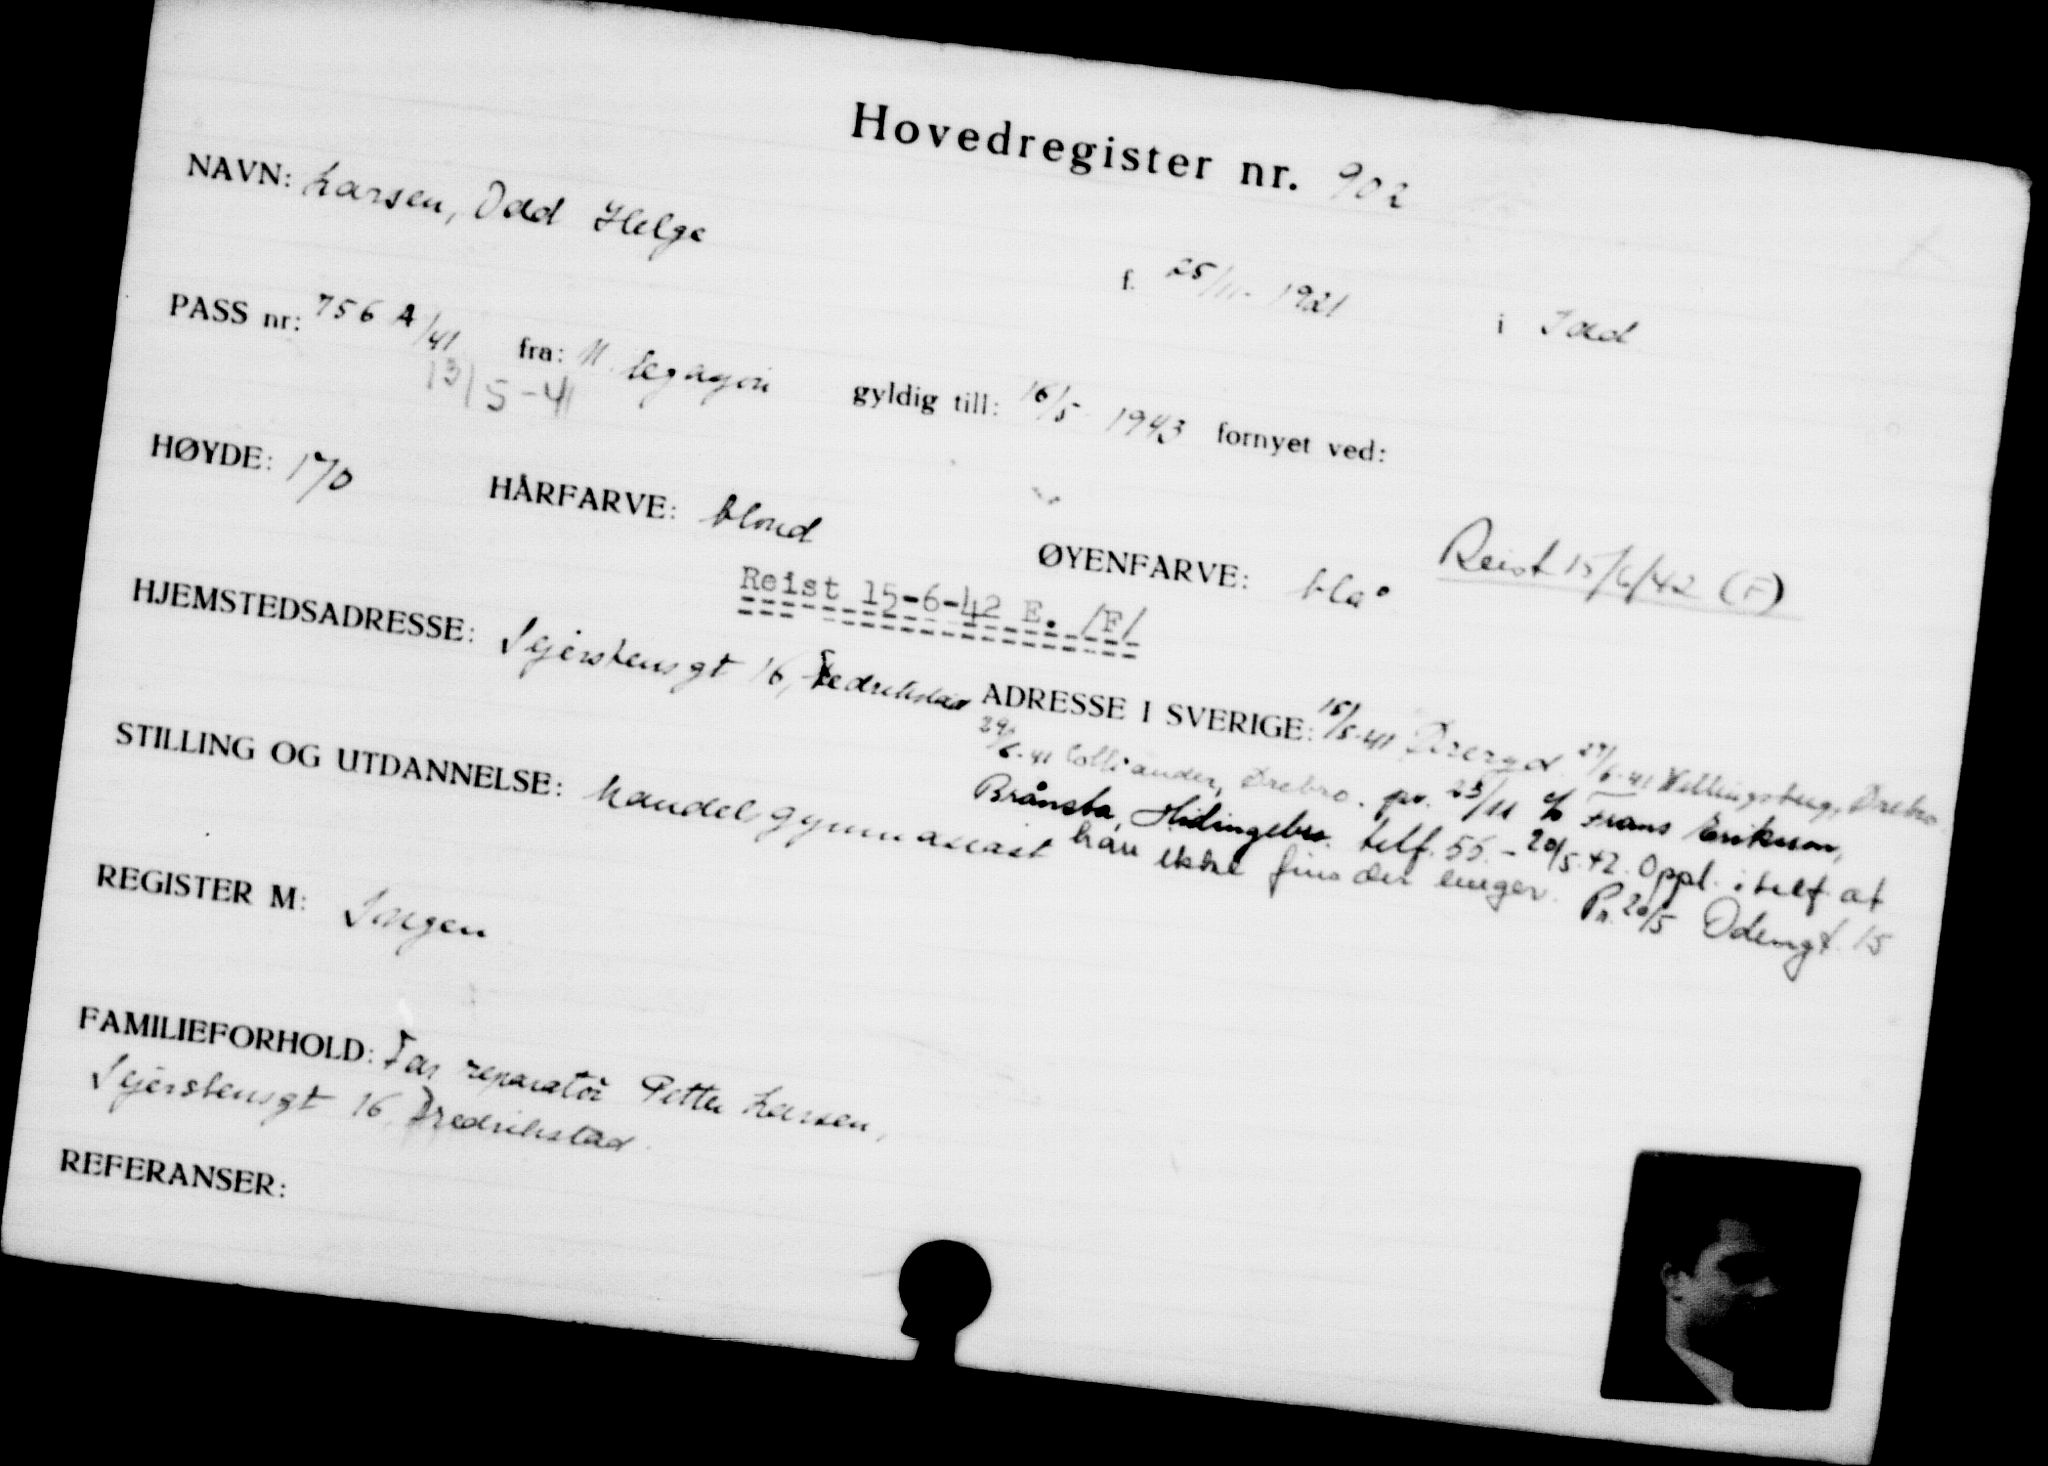 Hovedregister nr. 902
NAVN: Larsen, Odd Helge
f. 25/11-1921 i Idd
PASS nr: 756 A/41 fra: N. legasjon gyldig till: 16/5-1943 fornyet ved:
13/5-41
HØYDE: 170 HÅRFARVE: blond ØYENFARVE: blå Reist 15/6/42 (F)
Reist 15-6-42 E. /F/
HJEMSTEDSADRESSE: Sejerstensgt 16, Fredrikstad ADRESSE I SVERIGE: 15/5-41 Öreryd. 27/6-41 Örebro.
29/6-41 Örebro. pr. 25/11 c/o Frans Erikson,
Brånsta, Hidingebro. telf. 55. - 20/5.42. Oppl. i telf. at
han ikke fins der lenger. Pr. 20/5 Odengt. 15
STILLING OG UTDANNELSE: Handelsgymnasiast
REGISTER M: Ingen
FAMILIEFORHOLD: Far reparatör Petter Larsen,
Sejerstensgt 16, Fredrikstad.
REFERANSER: